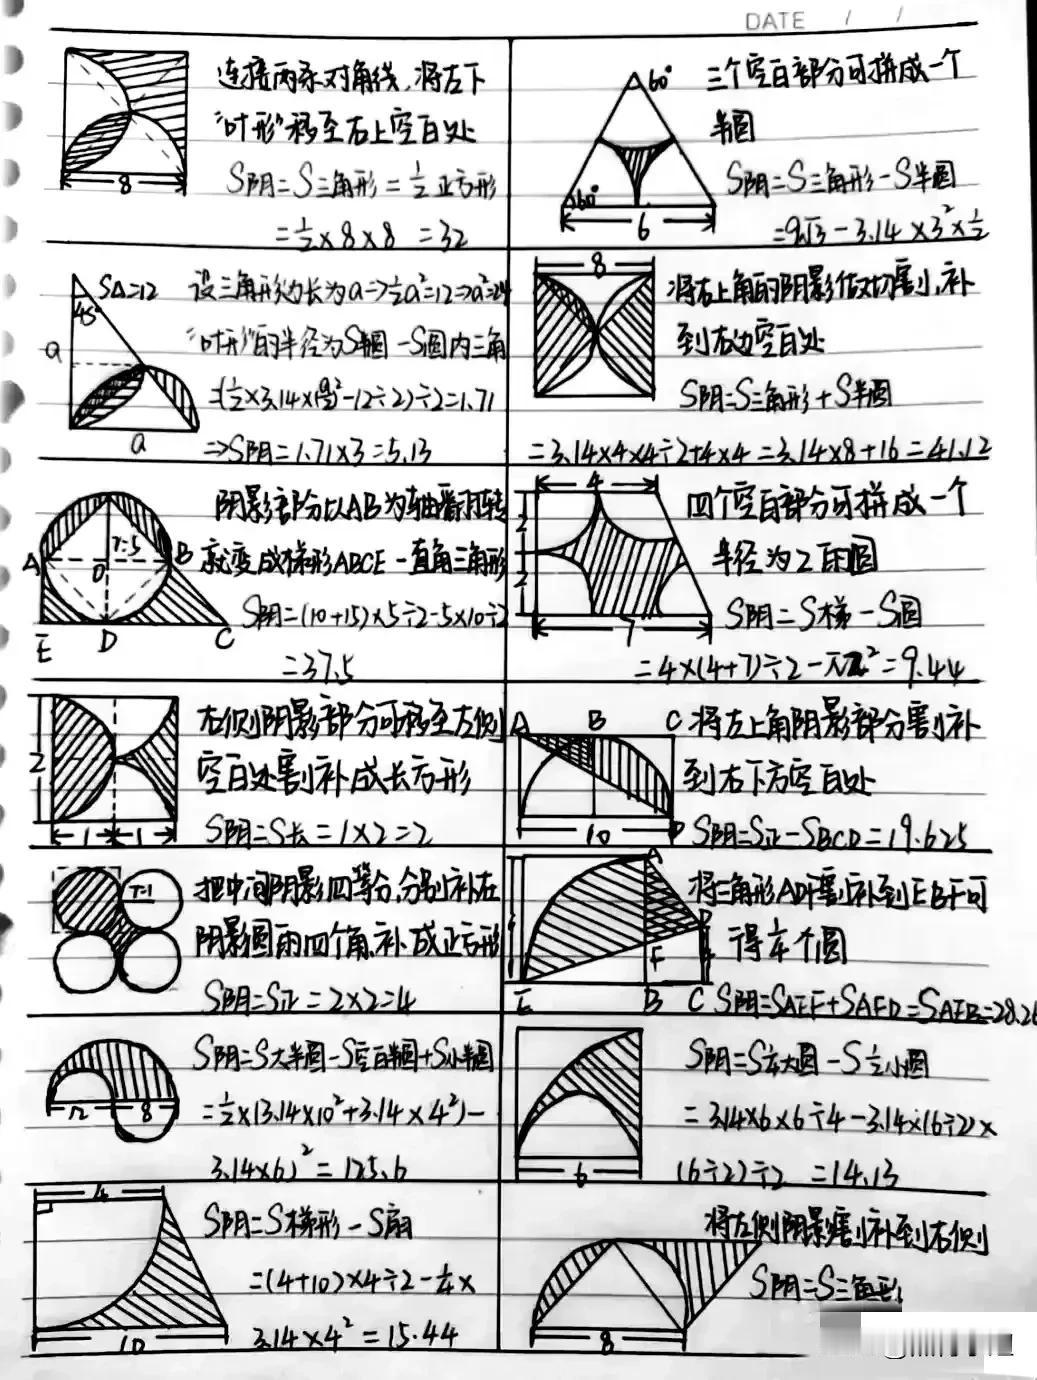 DATE / /
连接两条对角线,将左下
"叶形"移至右上空白处
S阴=S三角形=½正方形
=½×8×8=32
8
60°
三个空白部分可拼成一个
半圆
S阴=S三角形-S半圆
=9√3-3.14×3²×½
60°
6
S△=12
45°
a
a
设三角形边长为a=>½a²=12=>a²=24
"叶形"的半径为S半圆-S圆内三角
⇒S阴=1.71×3=5.13
8
将右上角的阴影做切割,补
到右边空白处
S阴=S三角形+S半圆
=3.14×4×4÷2+4×4=3.14×8+16=41.12
A
B
r=5
O
E
D
C
阴影部分以AB为轴翻转
就变成梯形ABCE-直角三角形
S阴=(10+15)×5÷2-5×10÷2
=37.5
4
2
2
7
四个空白部分可拼成一个
半径为2的圆
S阴=S梯-S圆
=4×(4+7)÷2-π2²=9.44
2
1
1
右侧阴影部分可移至左侧
空白处割补成长方形
S阴=S长=1×2=2
A B C
10
D
将左上角阴影部分割补
到右下方空白处
S阴=S正-SBCD=19.625
r=1
把中间阴影四等分,分别补在
阴影圆的四个角,补成正方形
S阴=S正=2×2=4
A
F
E B C
将三角形ADF割补到EBF可
得¼个圆
S阴=SAEF+SAFD=SAEB=28.26
12 8
S阴=S大半圆-S空白半圆+S小半圆
=½×(3.14×10²+3.14×4²)-
3.14×6)²=125.6
6
S阴=S¼大圆-S½小圆
=3.14×6×6÷4-3.14×(6÷2)×
(6÷2)÷2=14.13
4
10
S阴=S梯形-S扇
=(4+10)×4÷2-¼×
3.14×4²=15.44
8
将左侧阴影割补到右侧
S阴=S三角形